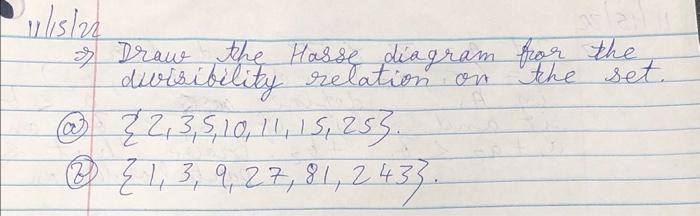 11/15/22
⇒ Draw the Hasse diagram for the
divisibility relation on the set.
ⓐ {2, 3, 5, 10, 11, 15, 25}.
ⓑ {1, 3, 9, 27, 81, 243}.